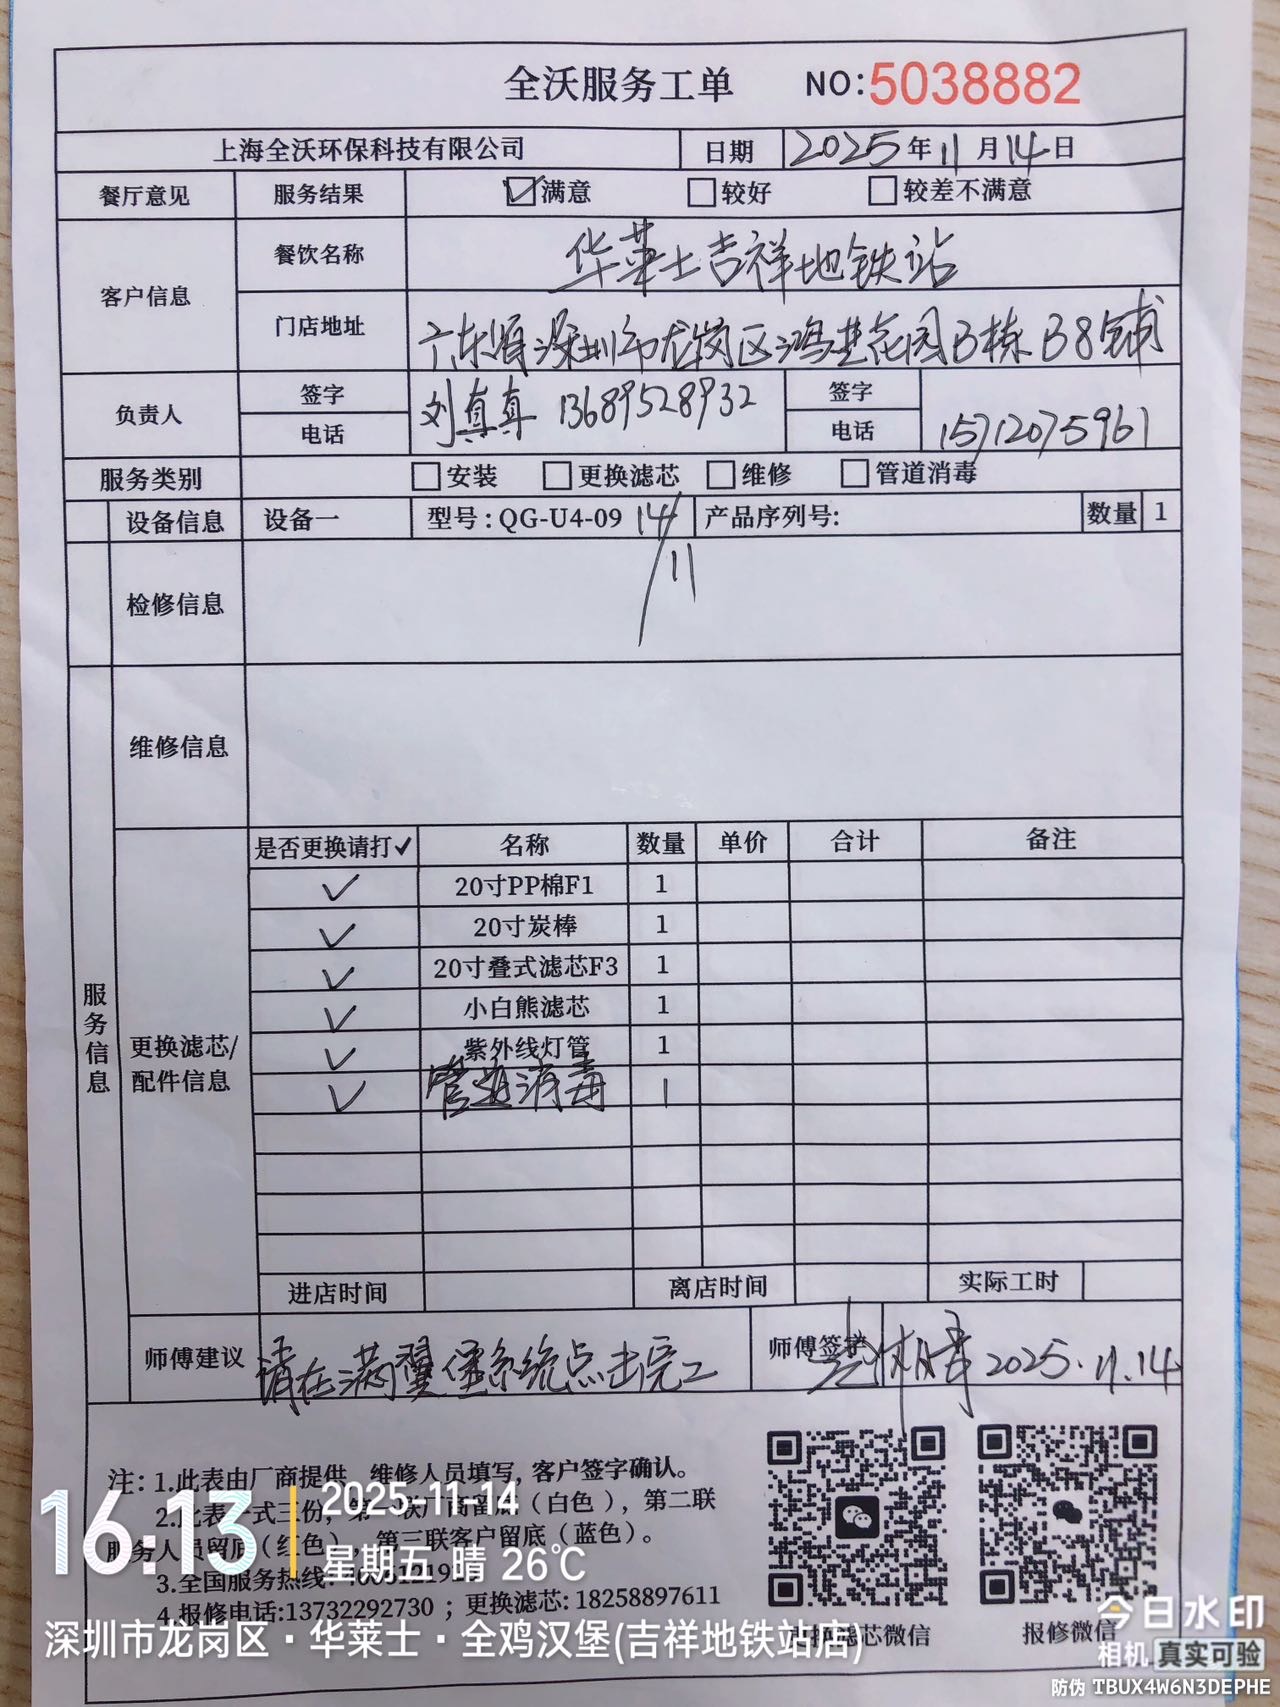 全沃服务工单 NO:5038882
上海全沃环保科技有限公司 日期 2025年11月14日
餐厅意见 服务结果 ☑满意 □较好 □较差不满意
客户信息 餐饮名称 华莱士吉祥地铁站
门店地址 广东省深圳市龙岗区鸿基花园B栋B8铺
负责人 签字 电话 刘真真 13689528932 签字 电话 15712075961
服务类别 □安装 □更换滤芯 □维修 □管道消毒
设备信息 设备一 型号:QG-U4-09 产品序列号: 数量 1
14/11
检修信息
维修信息
服务信息
更换滤芯/配件信息
是否更换请打✓ 名称 数量 单价 合计 备注
✓ 20寸PP棉F1 1
✓ 20寸炭棒 1
✓ 20寸叠式滤芯F3 1
✓ 小白熊滤芯 1
✓ 紫外线灯管 1
✓ 管道消毒 1
进店时间 离店时间 实际工时
师傅建议 请在满翼堡系统点击完工 师傅签字 2025.11.14
注: 1.此表由厂商提供 维修人员填写, 客户签字确认。
2.此表一式三份, 第一联厂商留底(白色), 第二联
服务人员留底(红色), 第三联客户留底(蓝色)。
3.全国服务热线:
4.报修电话:13732292730 ; 更换滤芯: 18258897611
更换滤芯微信 报修微信
16:13 2025-11-14
星期五 晴 26℃
深圳市龙岗区·华莱士·全鸡汉堡(吉祥地铁站店)
今日水印
相机 真实可验
防伪 TBUX4W6N3DEPHE